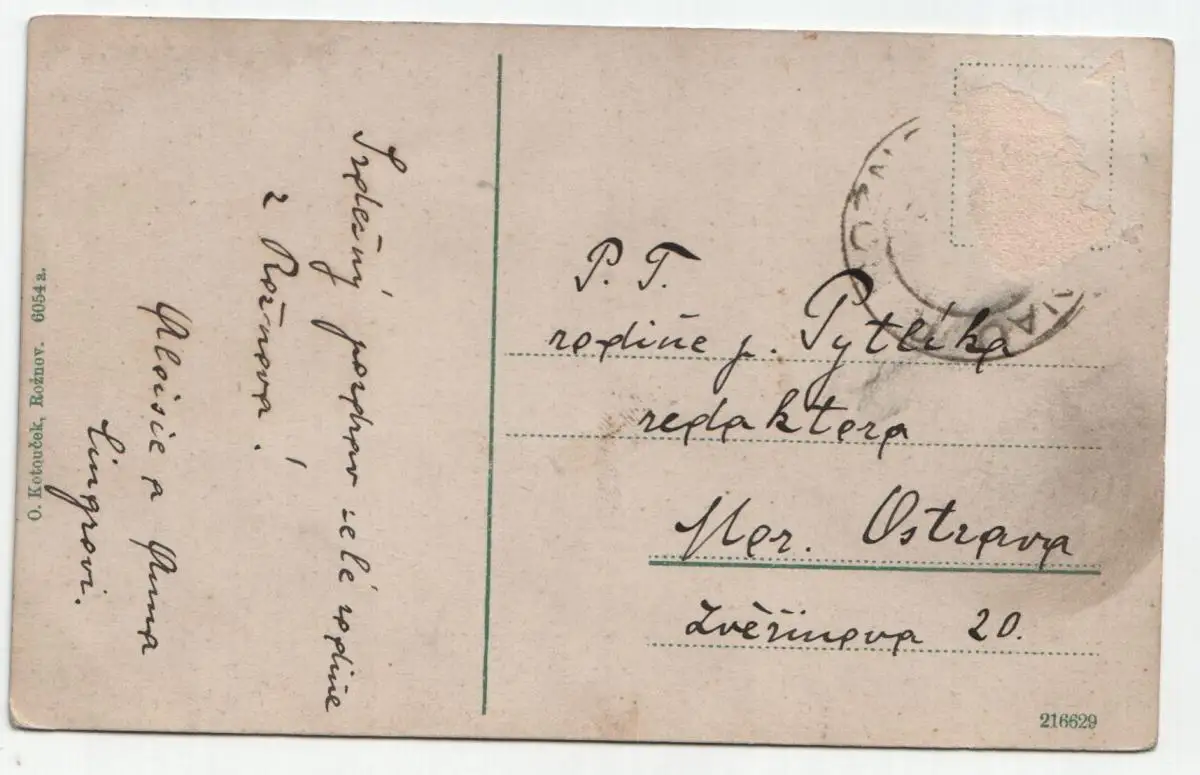 Srdečný pozdrav celé rodině
z Rožnova!
Aloisie a Anna
Lingrovi.
O. Kotouček, Rožnov. 6054 a.
P. T.
rodině p. Pytlíka
redaktora
Mor. Ostrava
Zvěřinova 20.
216629